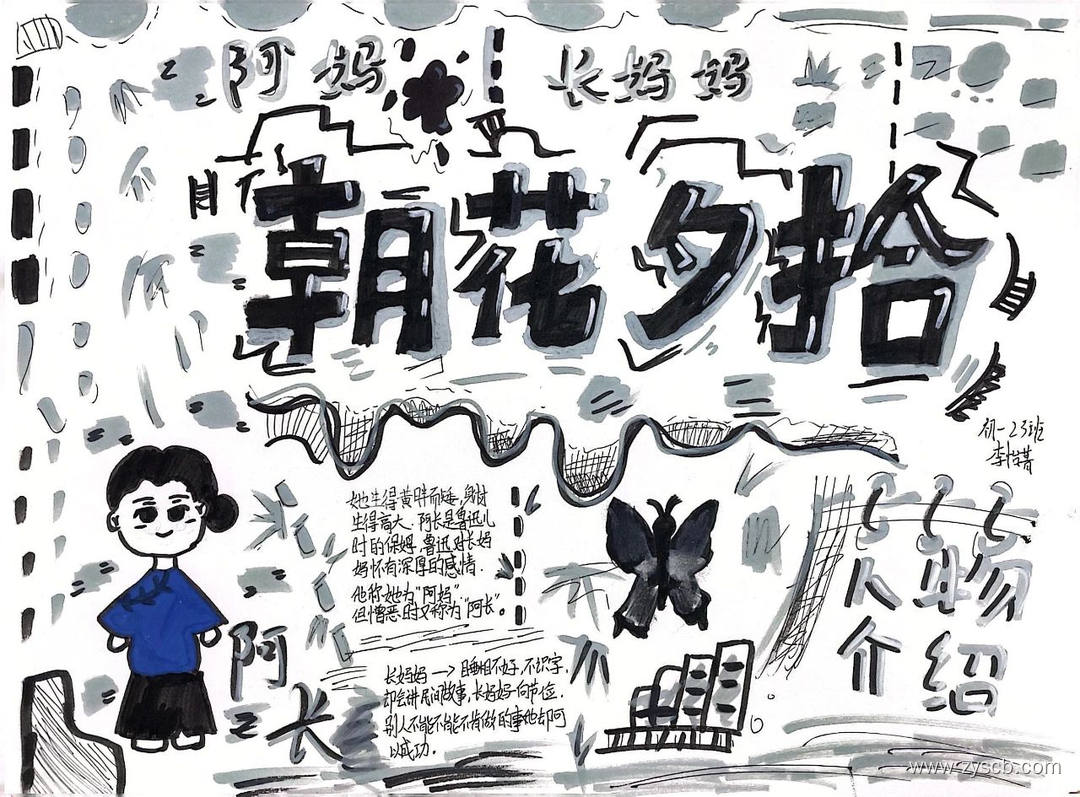 阿妈
长妈妈
朝花夕拾
初一23班
她生得黄胖而矮,身材
生得高大、阿长是鲁迅儿
时的保姆,鲁迅对长妈
妈怀有深厚的感情.
他称她为“阿妈”
但憎恶时又称为“阿长”。
长妈妈→睡相不好,不识字,
却会讲民间故事,长妈妈一向节俭.
别人不能不能不肯做的事他却可
以成功.
阿
长
人物
介绍
www.zyscb.com